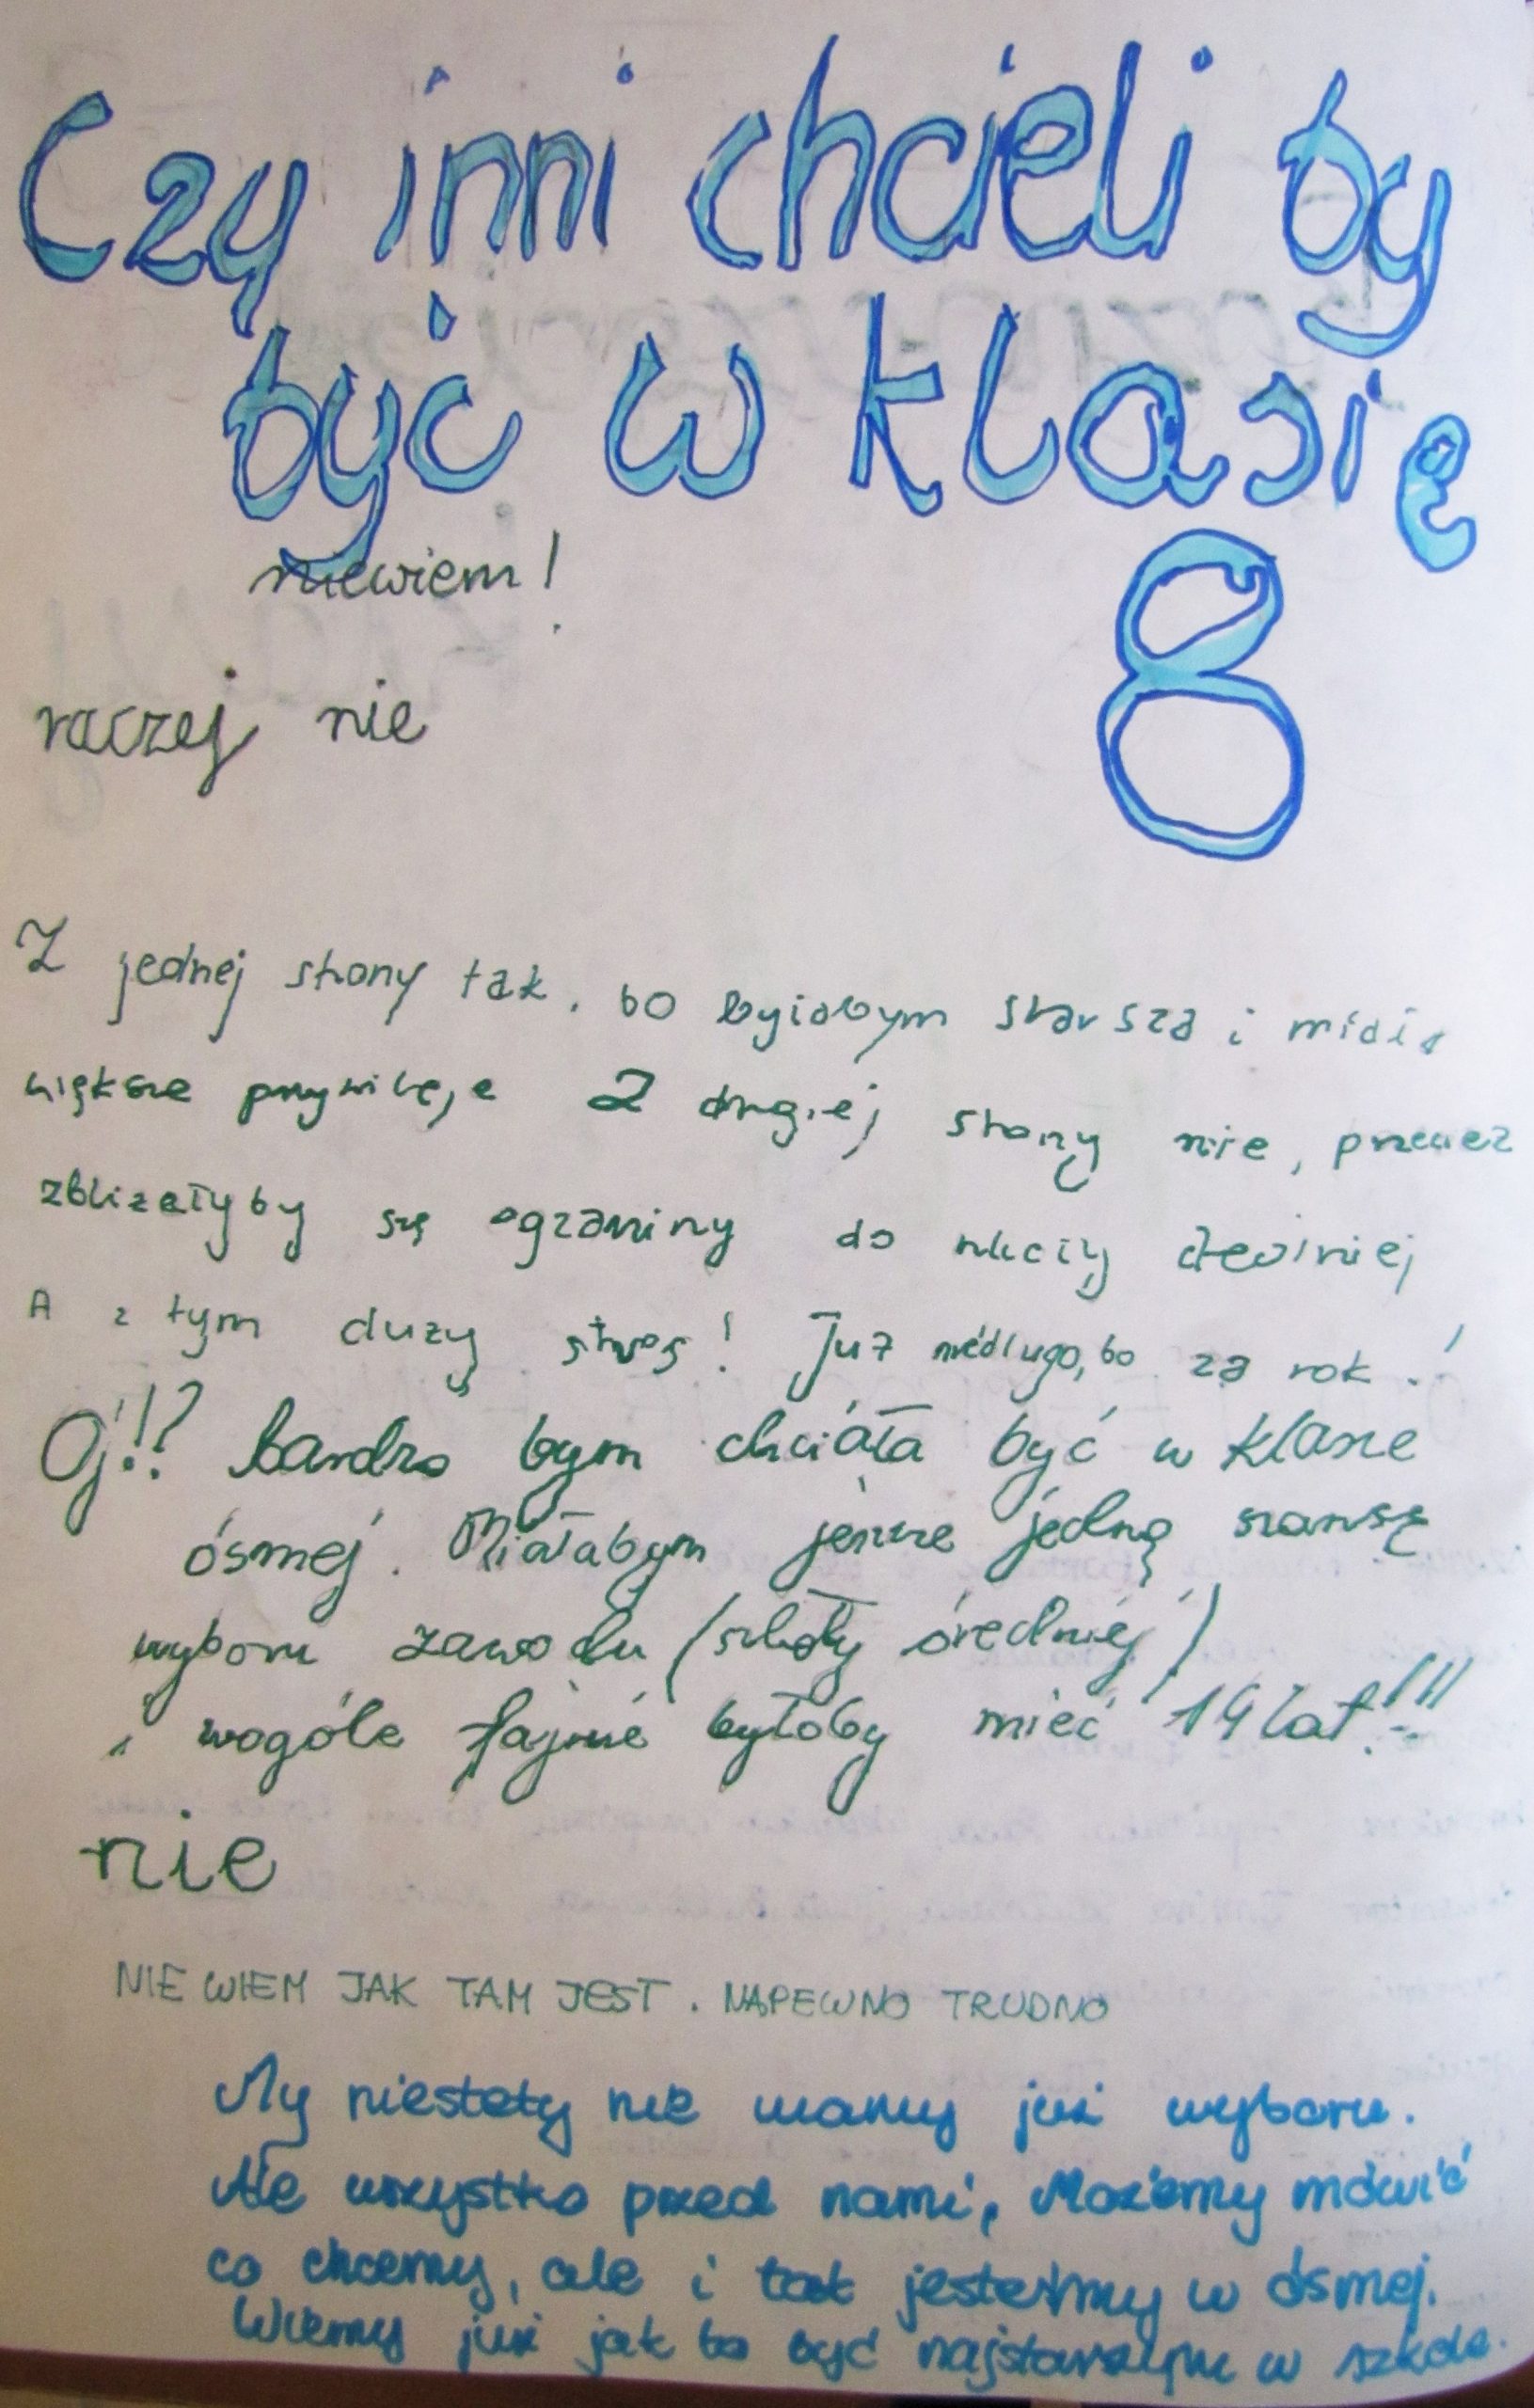 Czy inni chcieli by
być w klasie
8
niewiem!
raczej nie
Z jednej strony tak, bo byłabym starsza i miała
większe przywileje Z drugiej strony nie, przecież
zbliżałyby się egzaminy do szkoły średniej
A z tym duży stres! Już niedługo, bo za rok!
Oj!!? bardzo bym chciała być w klasie
ósmej. Miałabym jeszcze jedną szansę
wyboru zawodu (szkoły średniej)
i wogóle fajnie byłoby mieć 14 lat!!!
nie
NIE WIEM JAK TAM JEST. NAPEWNO TRUDNO
My niestety nie mamy już wyboru.
Ale wszystko przed nami, Możemy mówić
co chcemy, ale i tak jesteśmy w ósmej.
Wiemy już jak to być najstarszym w szkole.